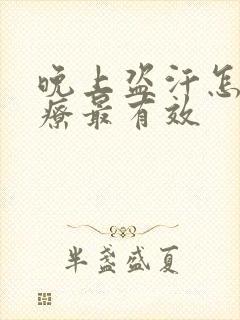 晚上盗汗怎
疗最有效
半盏盛夏